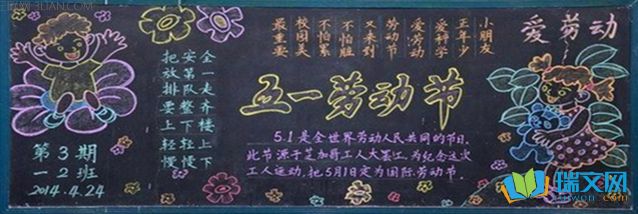 爱劳动
小朋友
正年少
爱科学
爱劳动
劳动节
又来到
不怕脏
不怕累
校园美
最重要
把安全
放第一
排队走
要整齐
上下楼
轻轻上
慢慢下
五一劳动节
5.1是全世界劳动人民共同的节日.
此节源于芝加哥工人大罢工,为纪念这次
工人运动,把5月1日定为国际劳动节.
第3期
一2班
2014.4.24
瑞文网